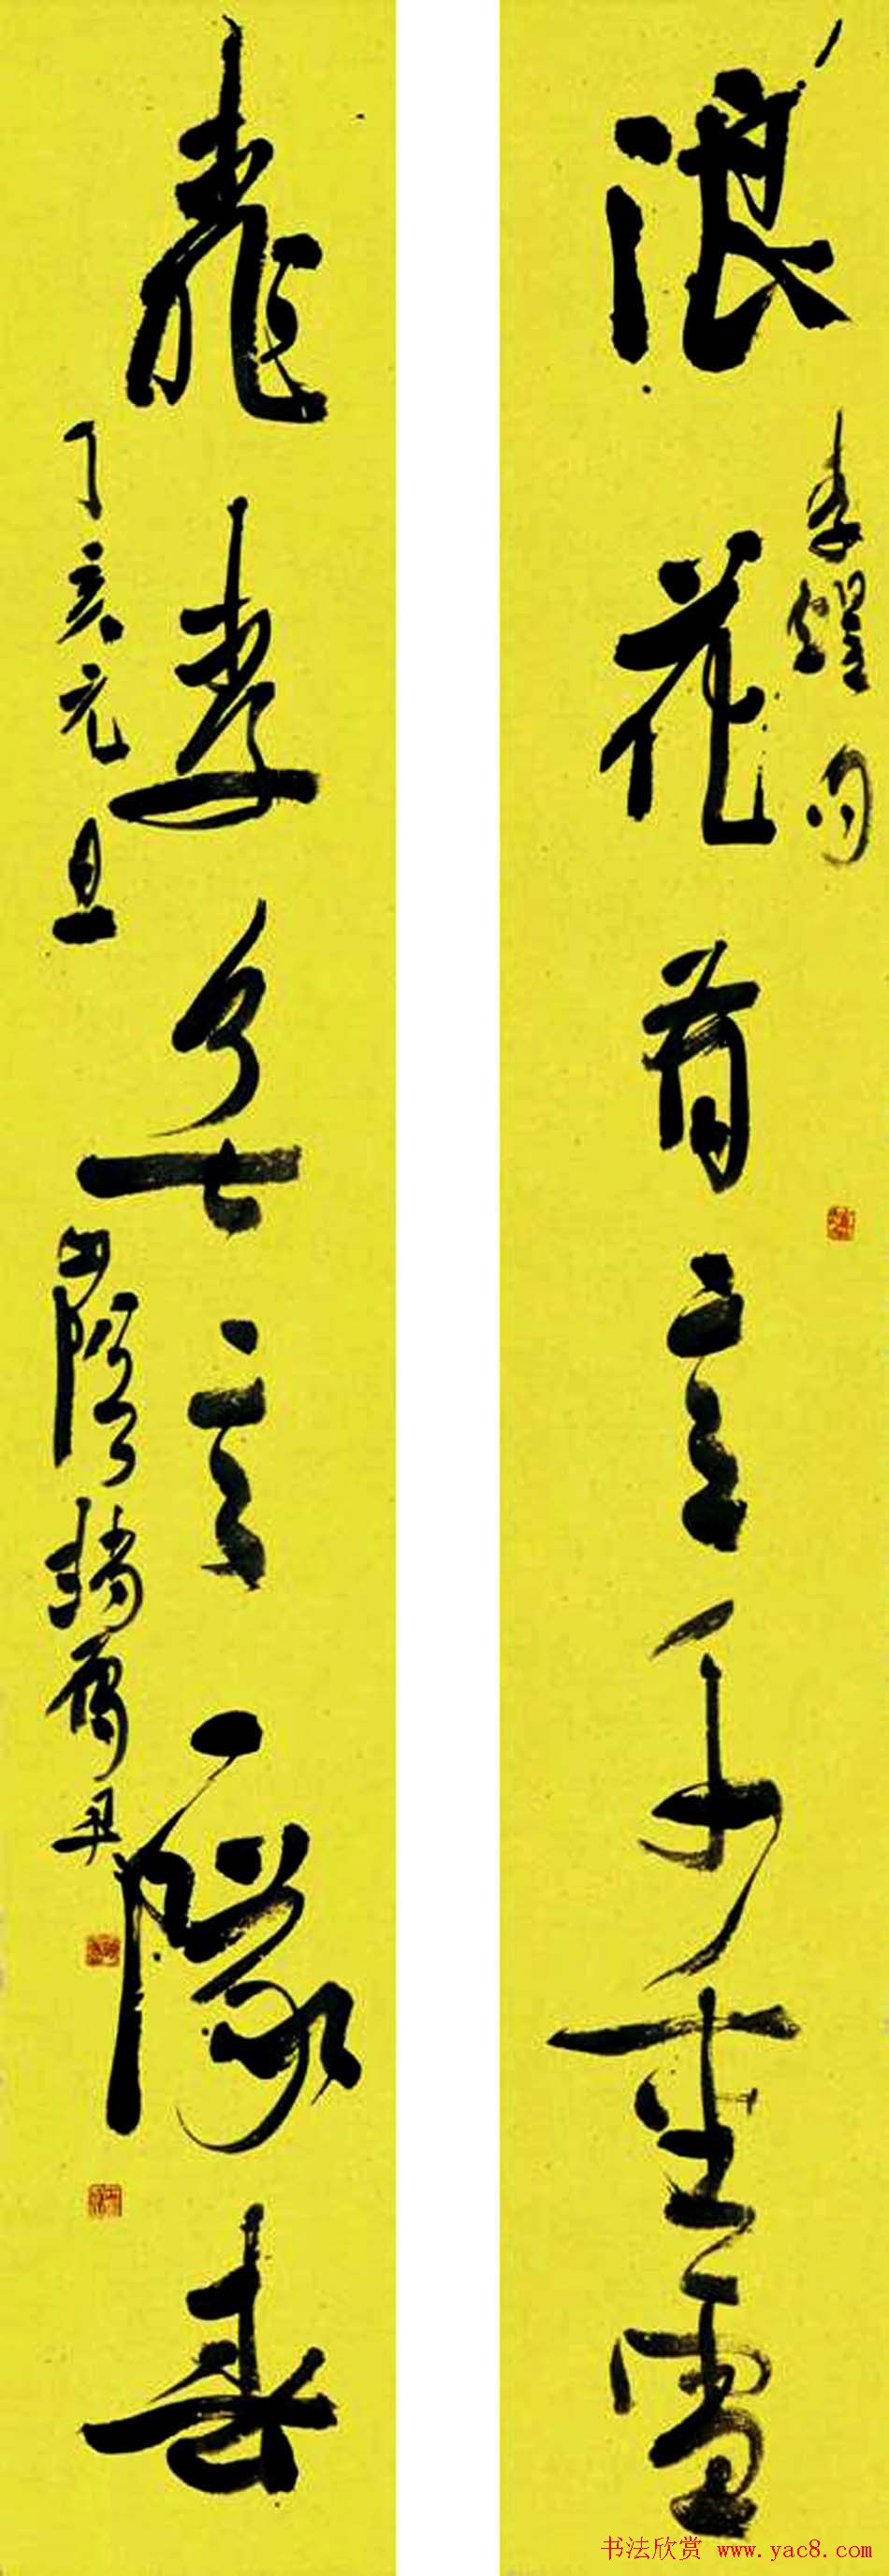 浪花有意千重雪
李煜句
桃李無言一隊春
丁亥元旦
书法欣赏 www.yac8.com